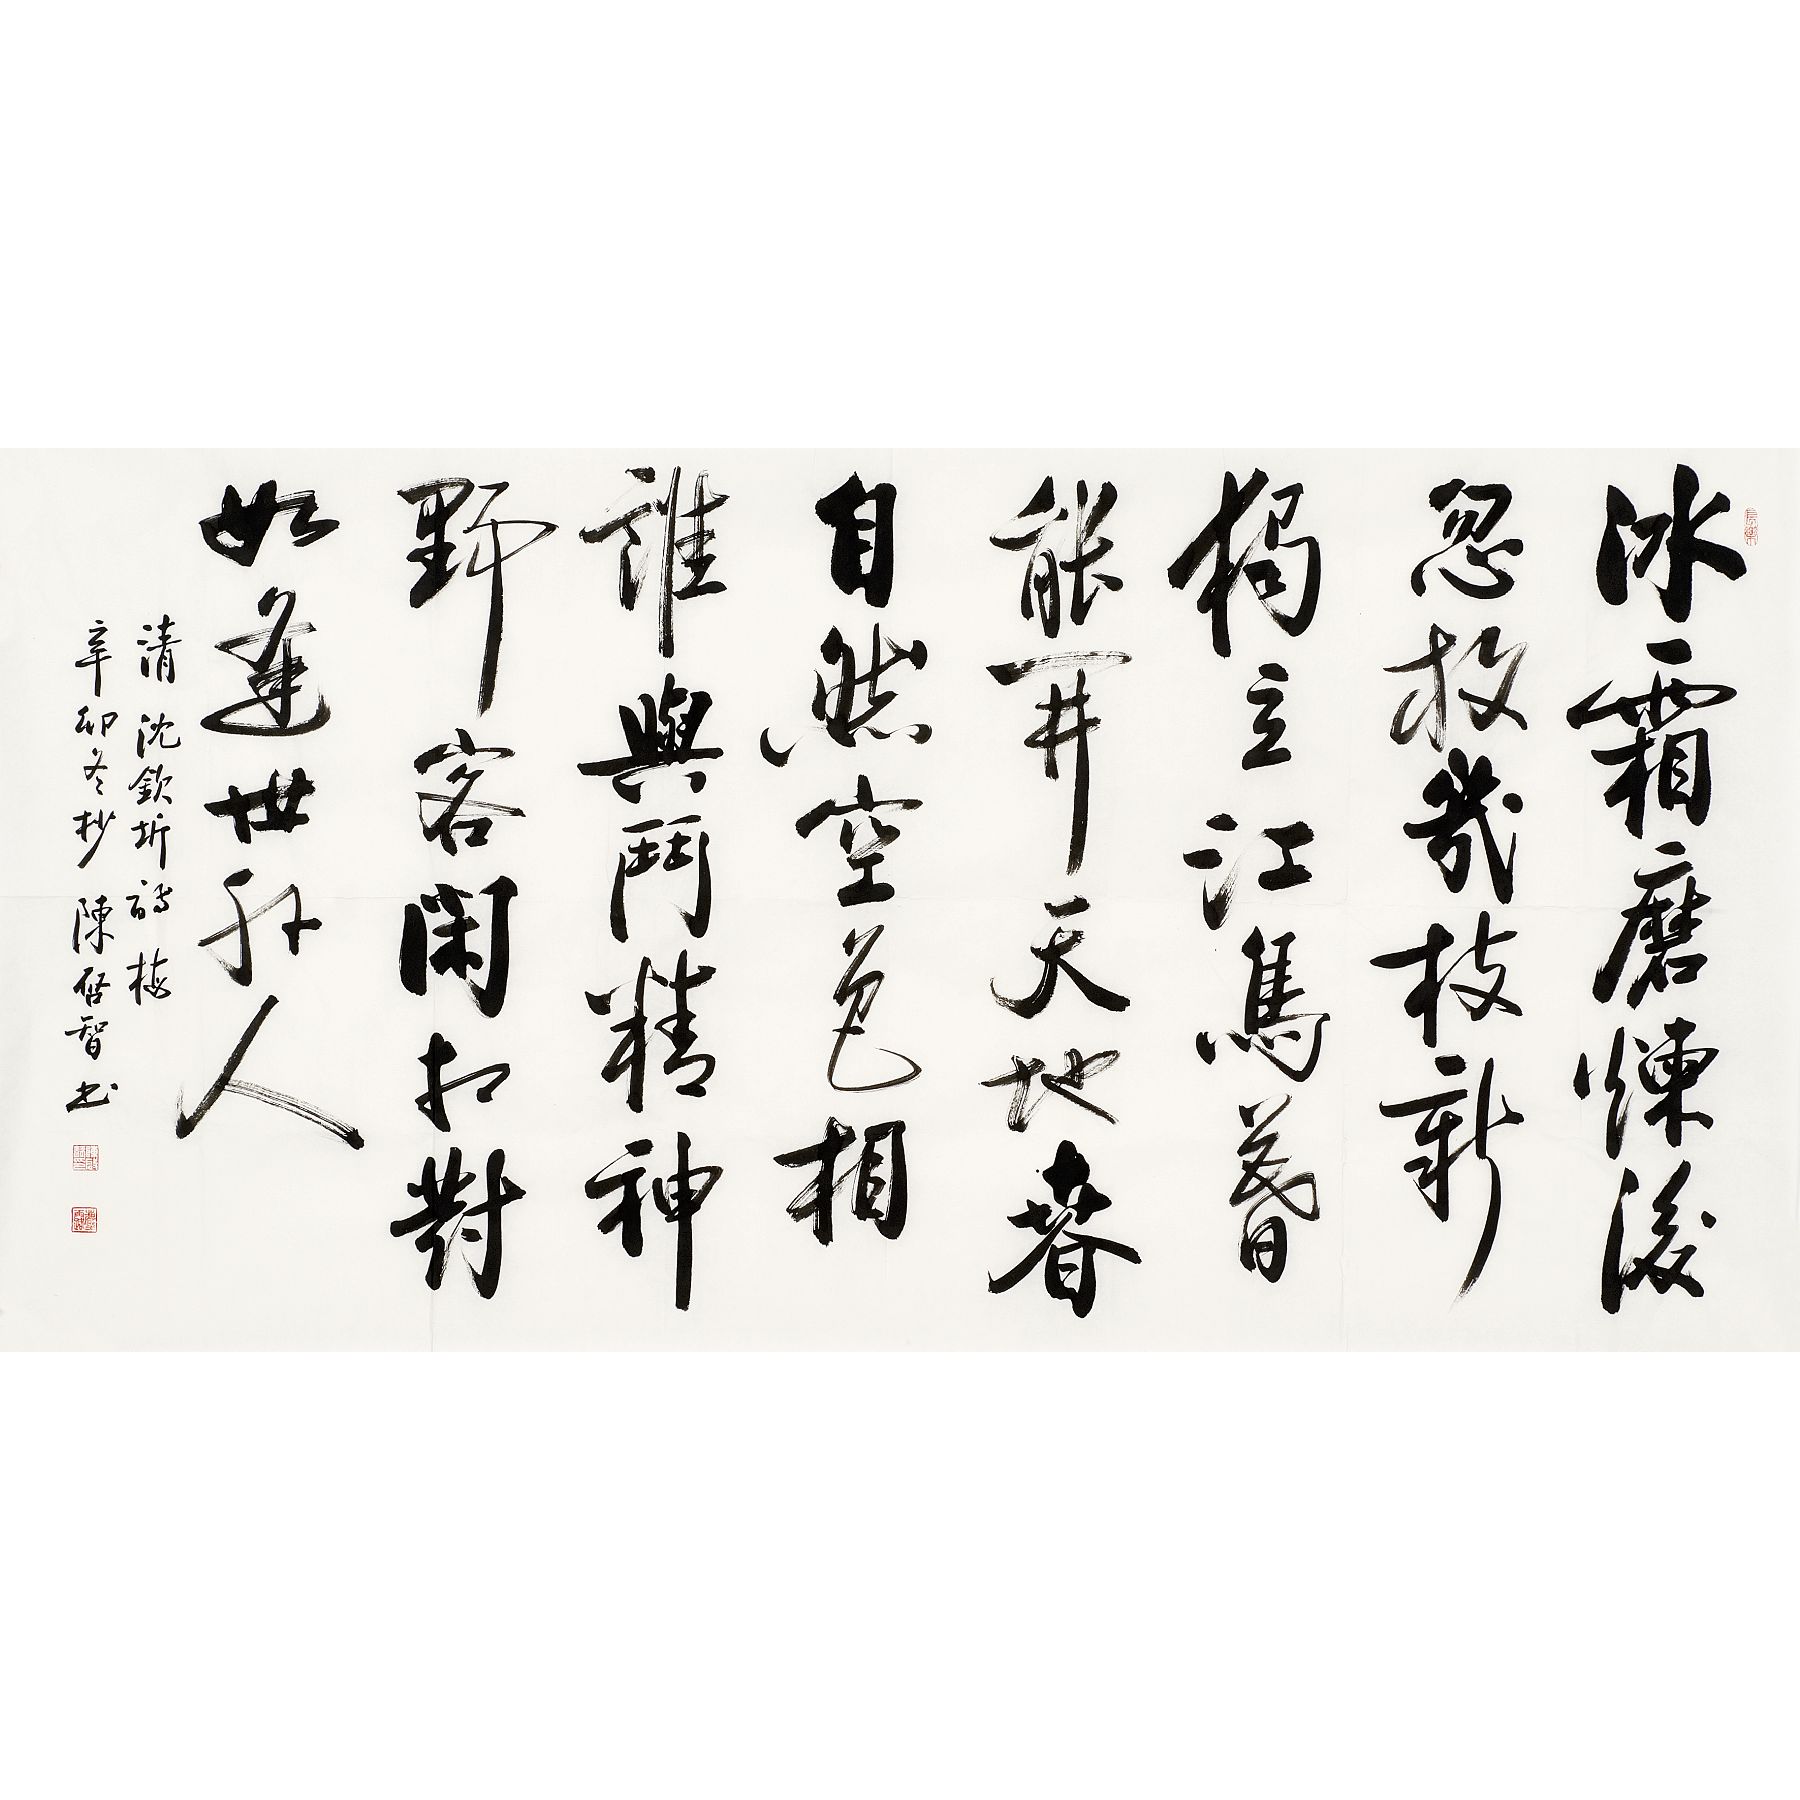 冰霜磨煉後
忽放幾枝新
獨立江鄉暮
能開天地春
自然空色相
誰與鬥精神
野客閑相對
如逢世外人
清 沈欽圻詩 梅
辛卯冬杪 陳啓智书